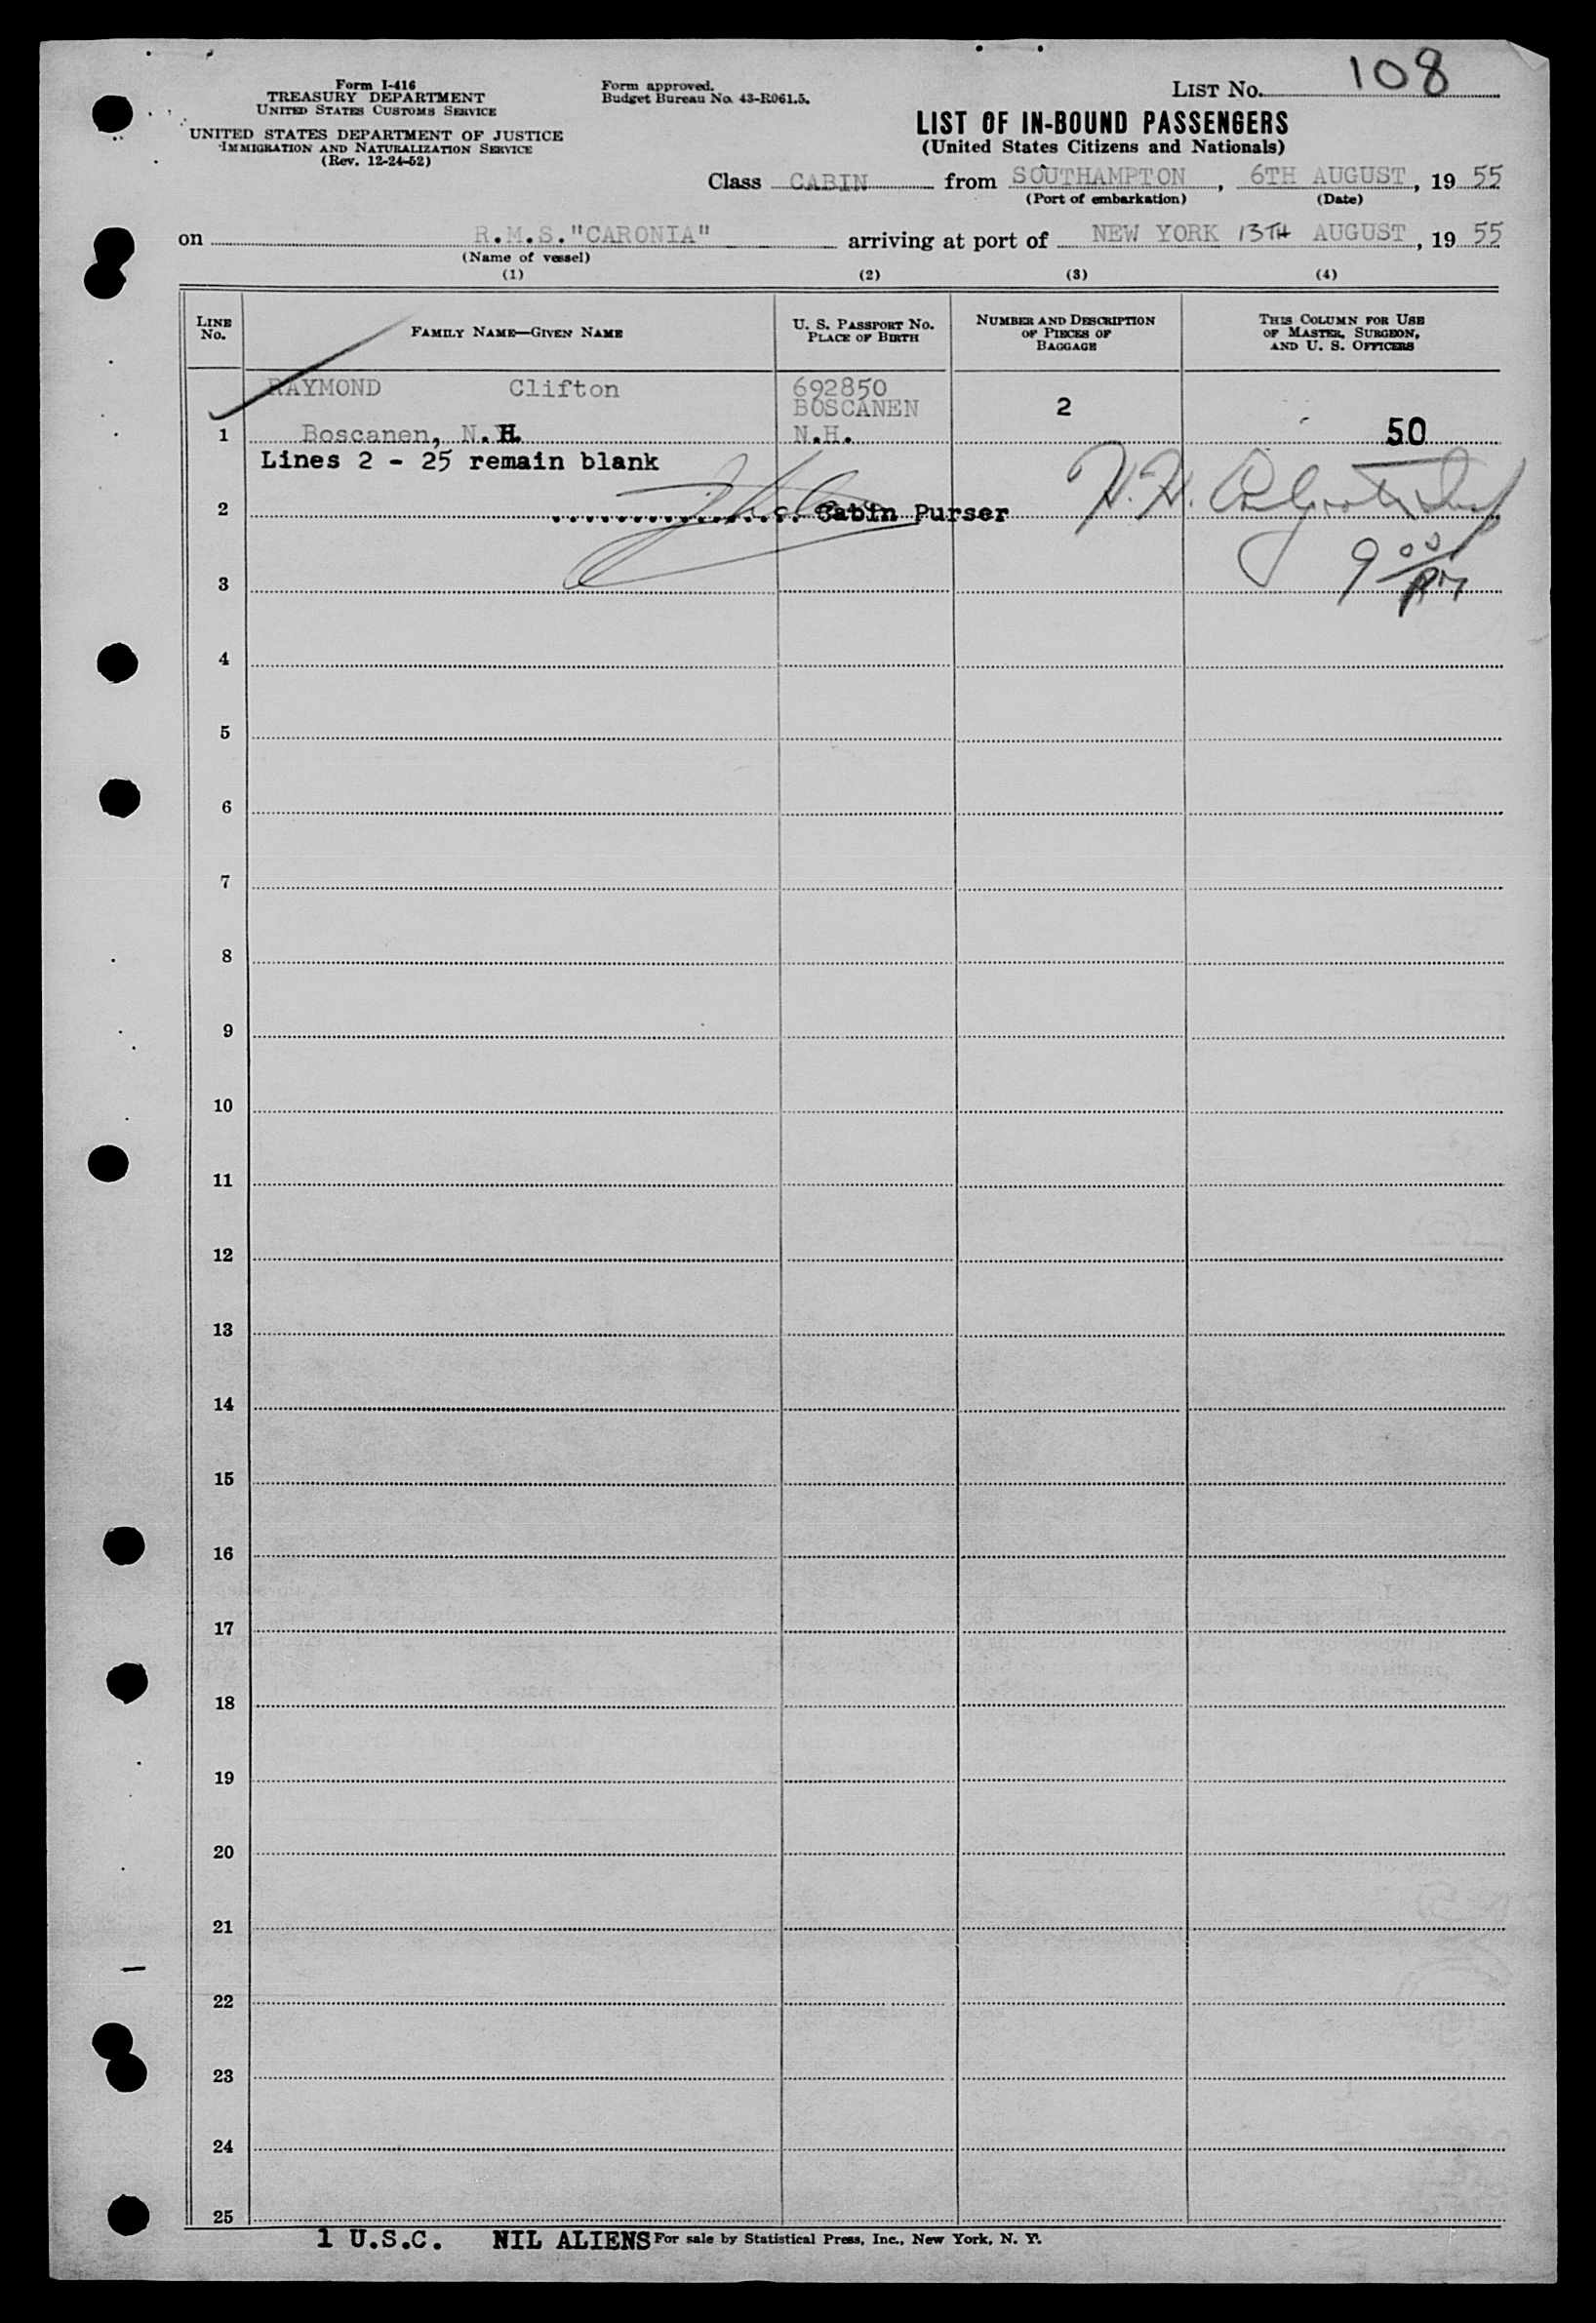 Form I-416
TREASURY DEPARTMENT
UNITED STATES CUSTOMS SERVICE
UNITED STATES DEPARTMENT OF JUSTICE
IMMIGRATION AND NATURALIZATION SERVICE
(Rev. 12-24-52)
Form approved.
Budget Bureau No. 43-R061.5.
LIST No. 108
LIST OF IN-BOUND PASSENGERS
(United States Citizens and Nationals)
Class CABIN from SOUTHAMPTON, 6TH AUGUST, 19 55
(Port of embarkation) (Date)
on R.M.S."CARONIA" arriving at port of NEW YORK 13TH AUGUST, 19 55
(Name of vessel)
(1) (2) (3) (4)
LINE No. FAMILY NAME—GIVEN NAME U. S. PASSPORT NO. PLACE OF BIRTH NUMBER AND DESCRIPTION OF PIECES OF BAGGAGE THIS COLUMN FOR USE OF MASTER, SURGEON, AND U. S. OFFICERS
RAYMOND Clifton 692850
BOSCANEN 2
1 Boscanen, N.H. N.H. 50
Lines 2 - 25 remain blank
2 Cabin Purser H.H.
9 00 PM
3
4
5
6
7
8
9
10
11
12
13
14
15
16
17
18
19
20
21
22
23
24
25
1 U.S.C. NIL ALIENS For sale by Statistical Press, Inc., New York, N. Y.